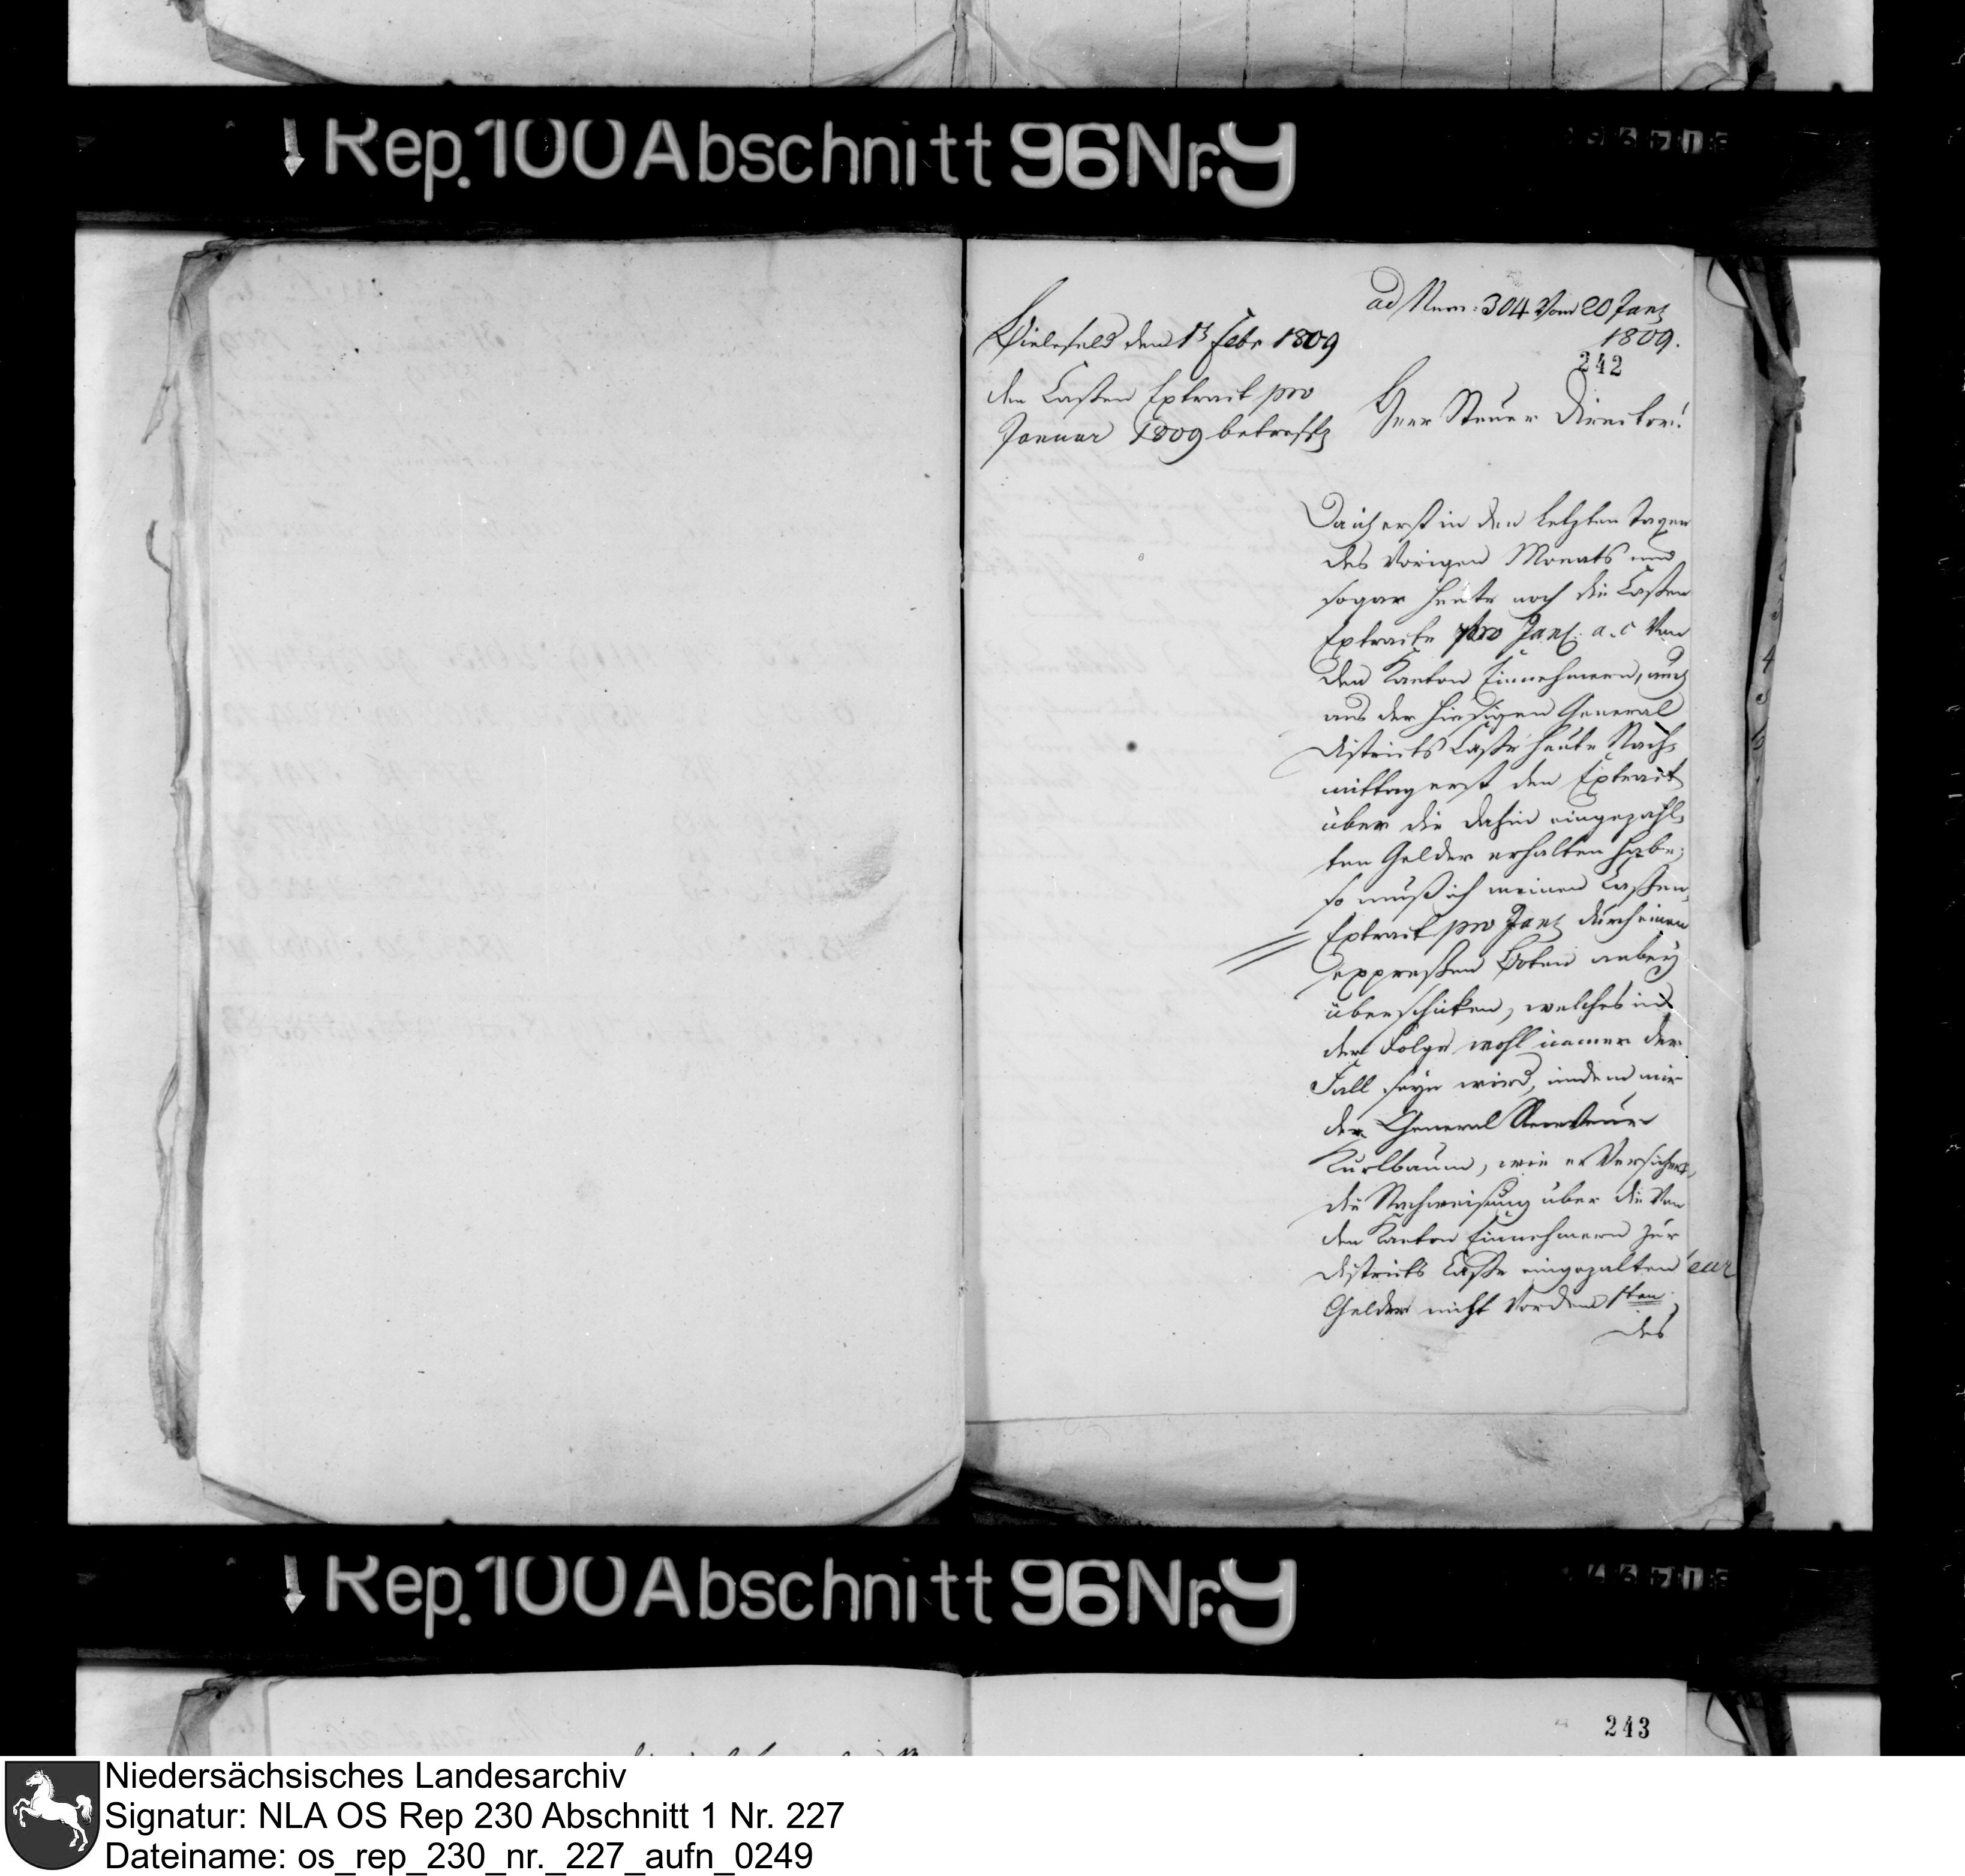 Rep. 100 Abschnitt 96 Nr. 9
ad Num: 304 vom 20 Janr
1809.
242
Bielefeld den 1t Febr 1809
den Cassen Extract pro
Januar 1809 betreffd
Herr Steuer Director!
Da ich erst in den letzten Tagen
des vorigen Monats und
sogar heute noch die Cassen
Extracte pro Janr. a. c von
den Kanton Einnehmern, auch
aus der hiesigen General
Districts Casse heute Nach-
mittag erst den Extract
über die dahin eingezahl-
ten Gelder erhalten habe;
so muß ich meinen Cassen-
Extract pro Janr durch einen
expressen Boten anbey
überschicken, welches in
der Folge wohl immer der
Fall seyn wird, indem mir
der General
Kurlbaum, wie er versichert,
die Nachweisung über die von
den Kanton Einnehmern zur
Districts Casse eingezalten
Gelder nicht vor dem sten
des
Rep. 100 Abschnitt 96 Nr. 9
243
Niedersächsisches Landesarchiv
Signatur: NLA OS Rep 230 Abschnitt 1 Nr. 227
Dateiname: os_rep_230_nr._227_aufn_0249